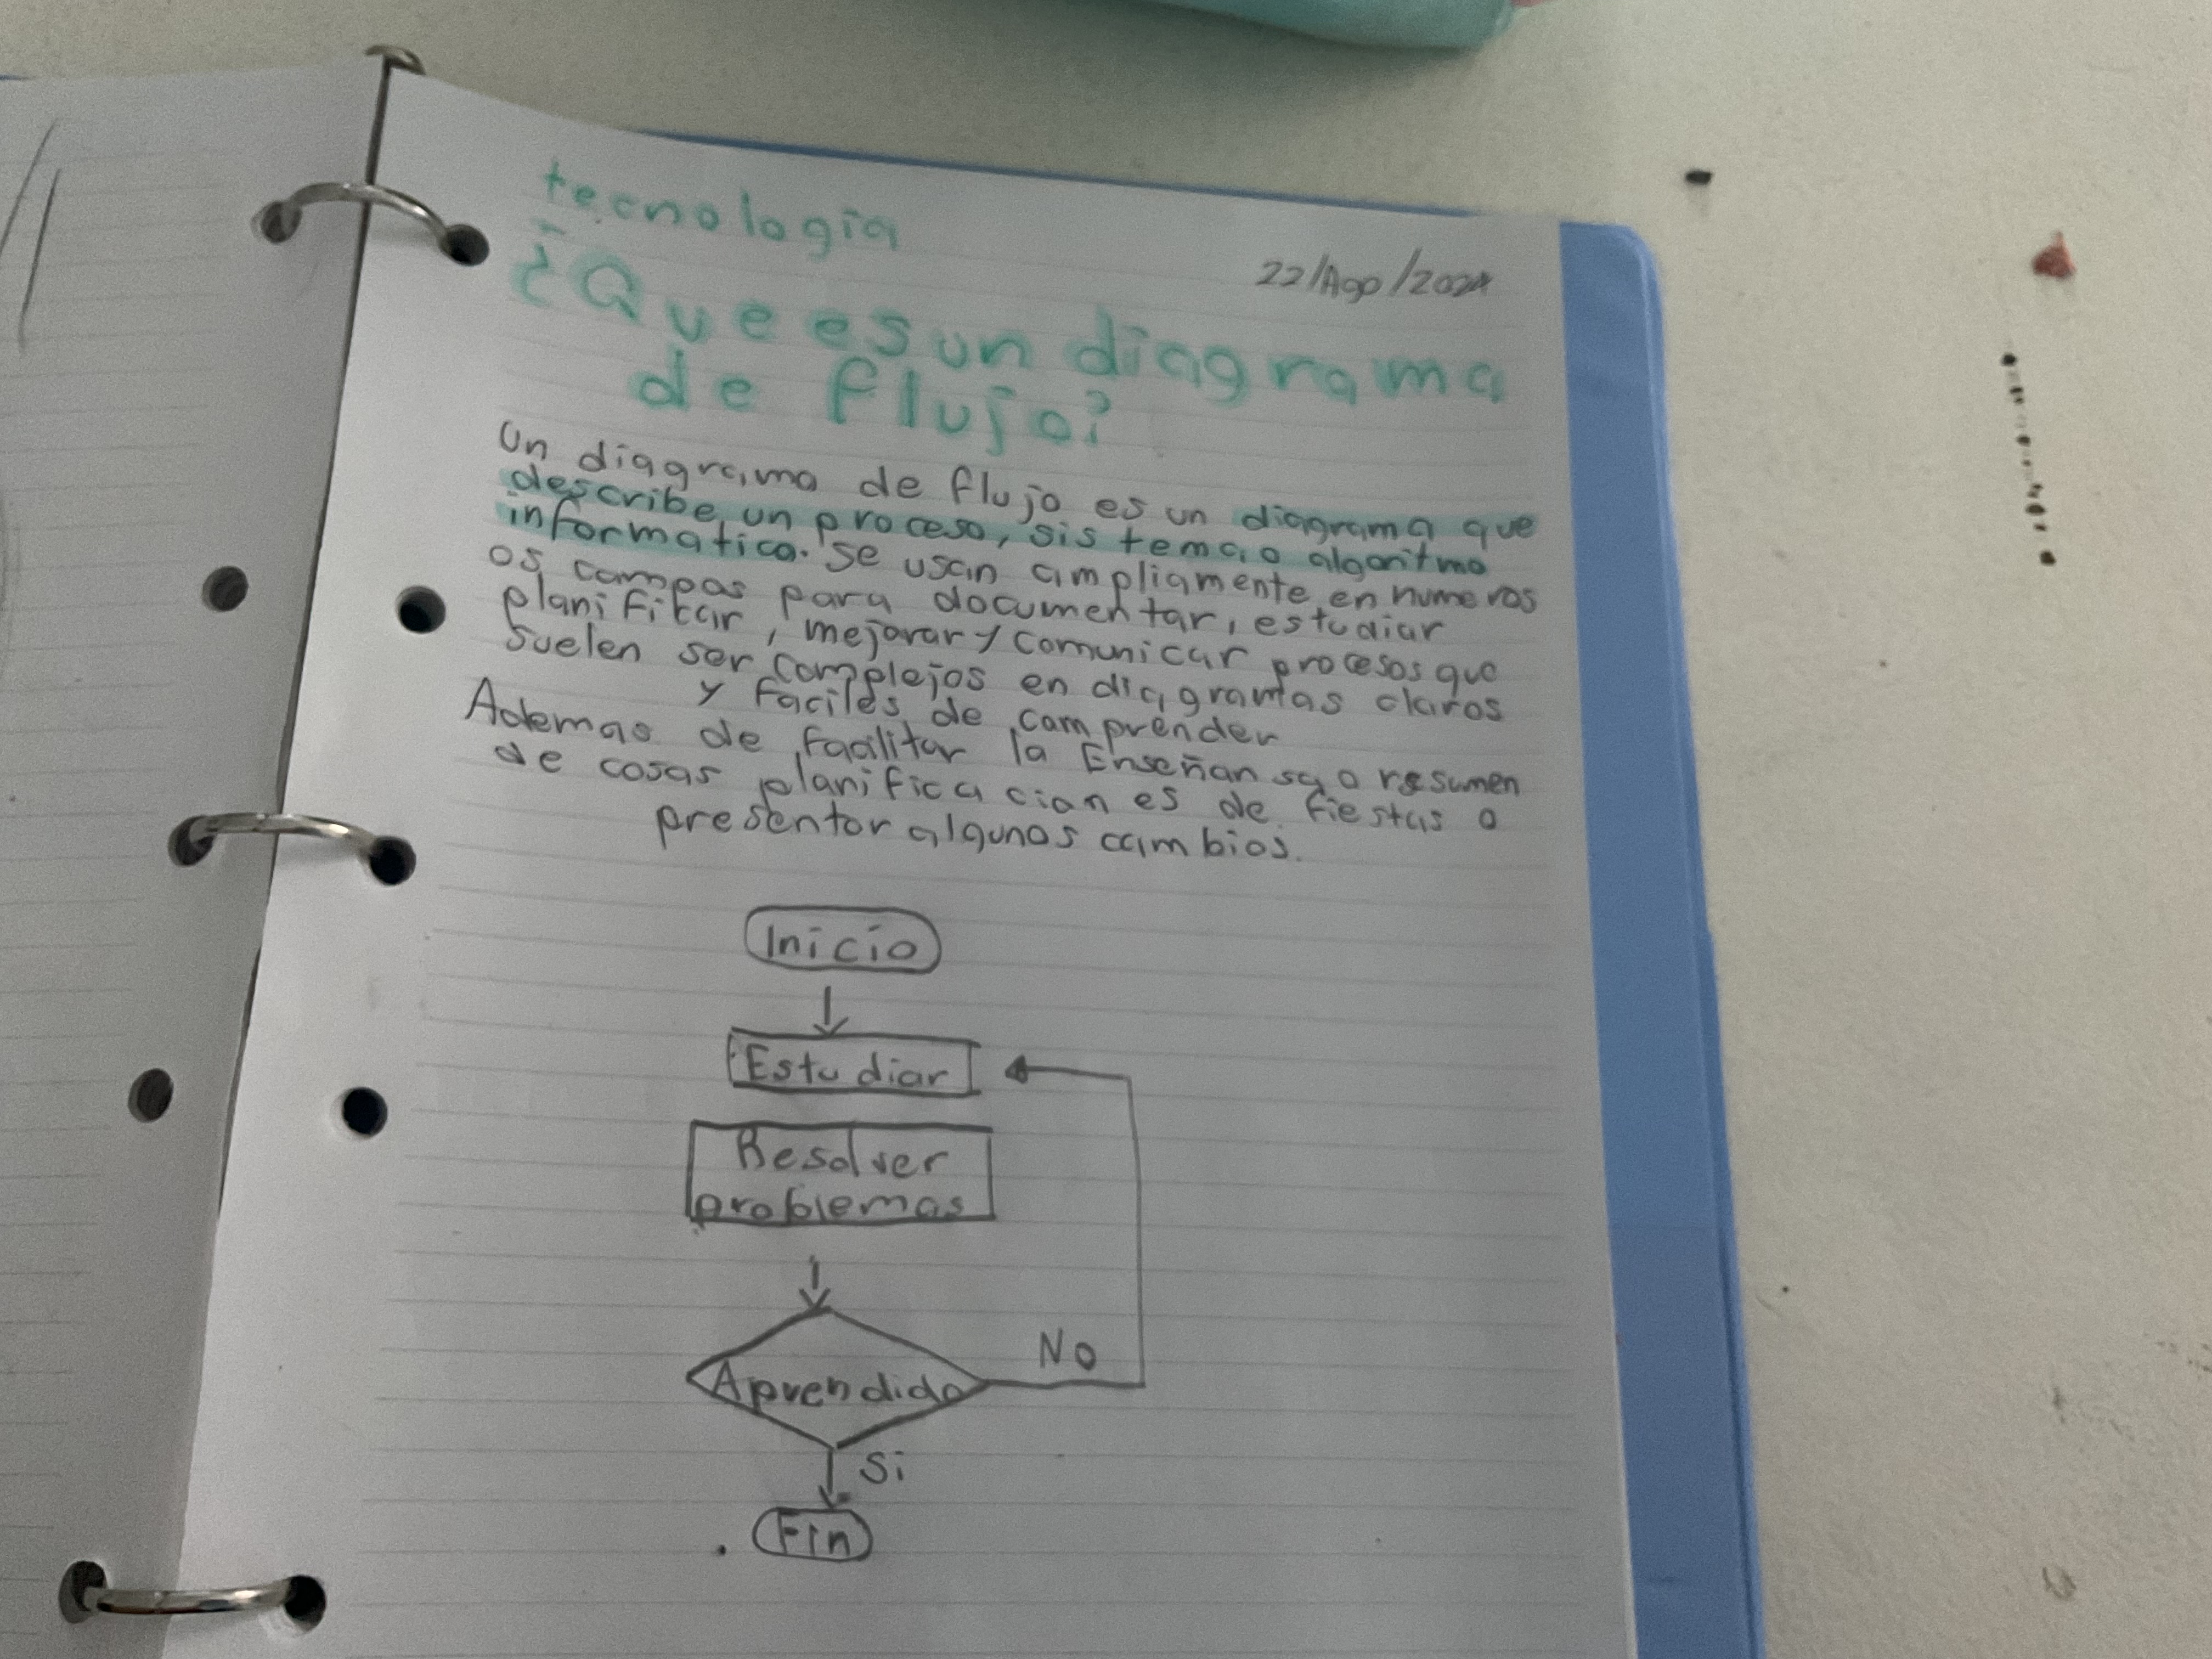 tecnologia
22/Ago/2024
¿Que es un diagrama
de flujo?
Un diagrama de flujo es un diagrama que
describe un proceso, sistema o algoritmo
informatico. Se usan ampliamente en numeros
os campos para documentar, estudiar
planificar, mejorar y comunicar procesos que
suelen ser complejos en diagramas claros
y faciles de comprender
Ademas de facilitar la Enseñansa o resumen
de cosas planificaciones de fiestas o
presentar algunos cambios.
Inicio
Estudiar
Resolver
problemas
No
Aprendido
Si
Fin